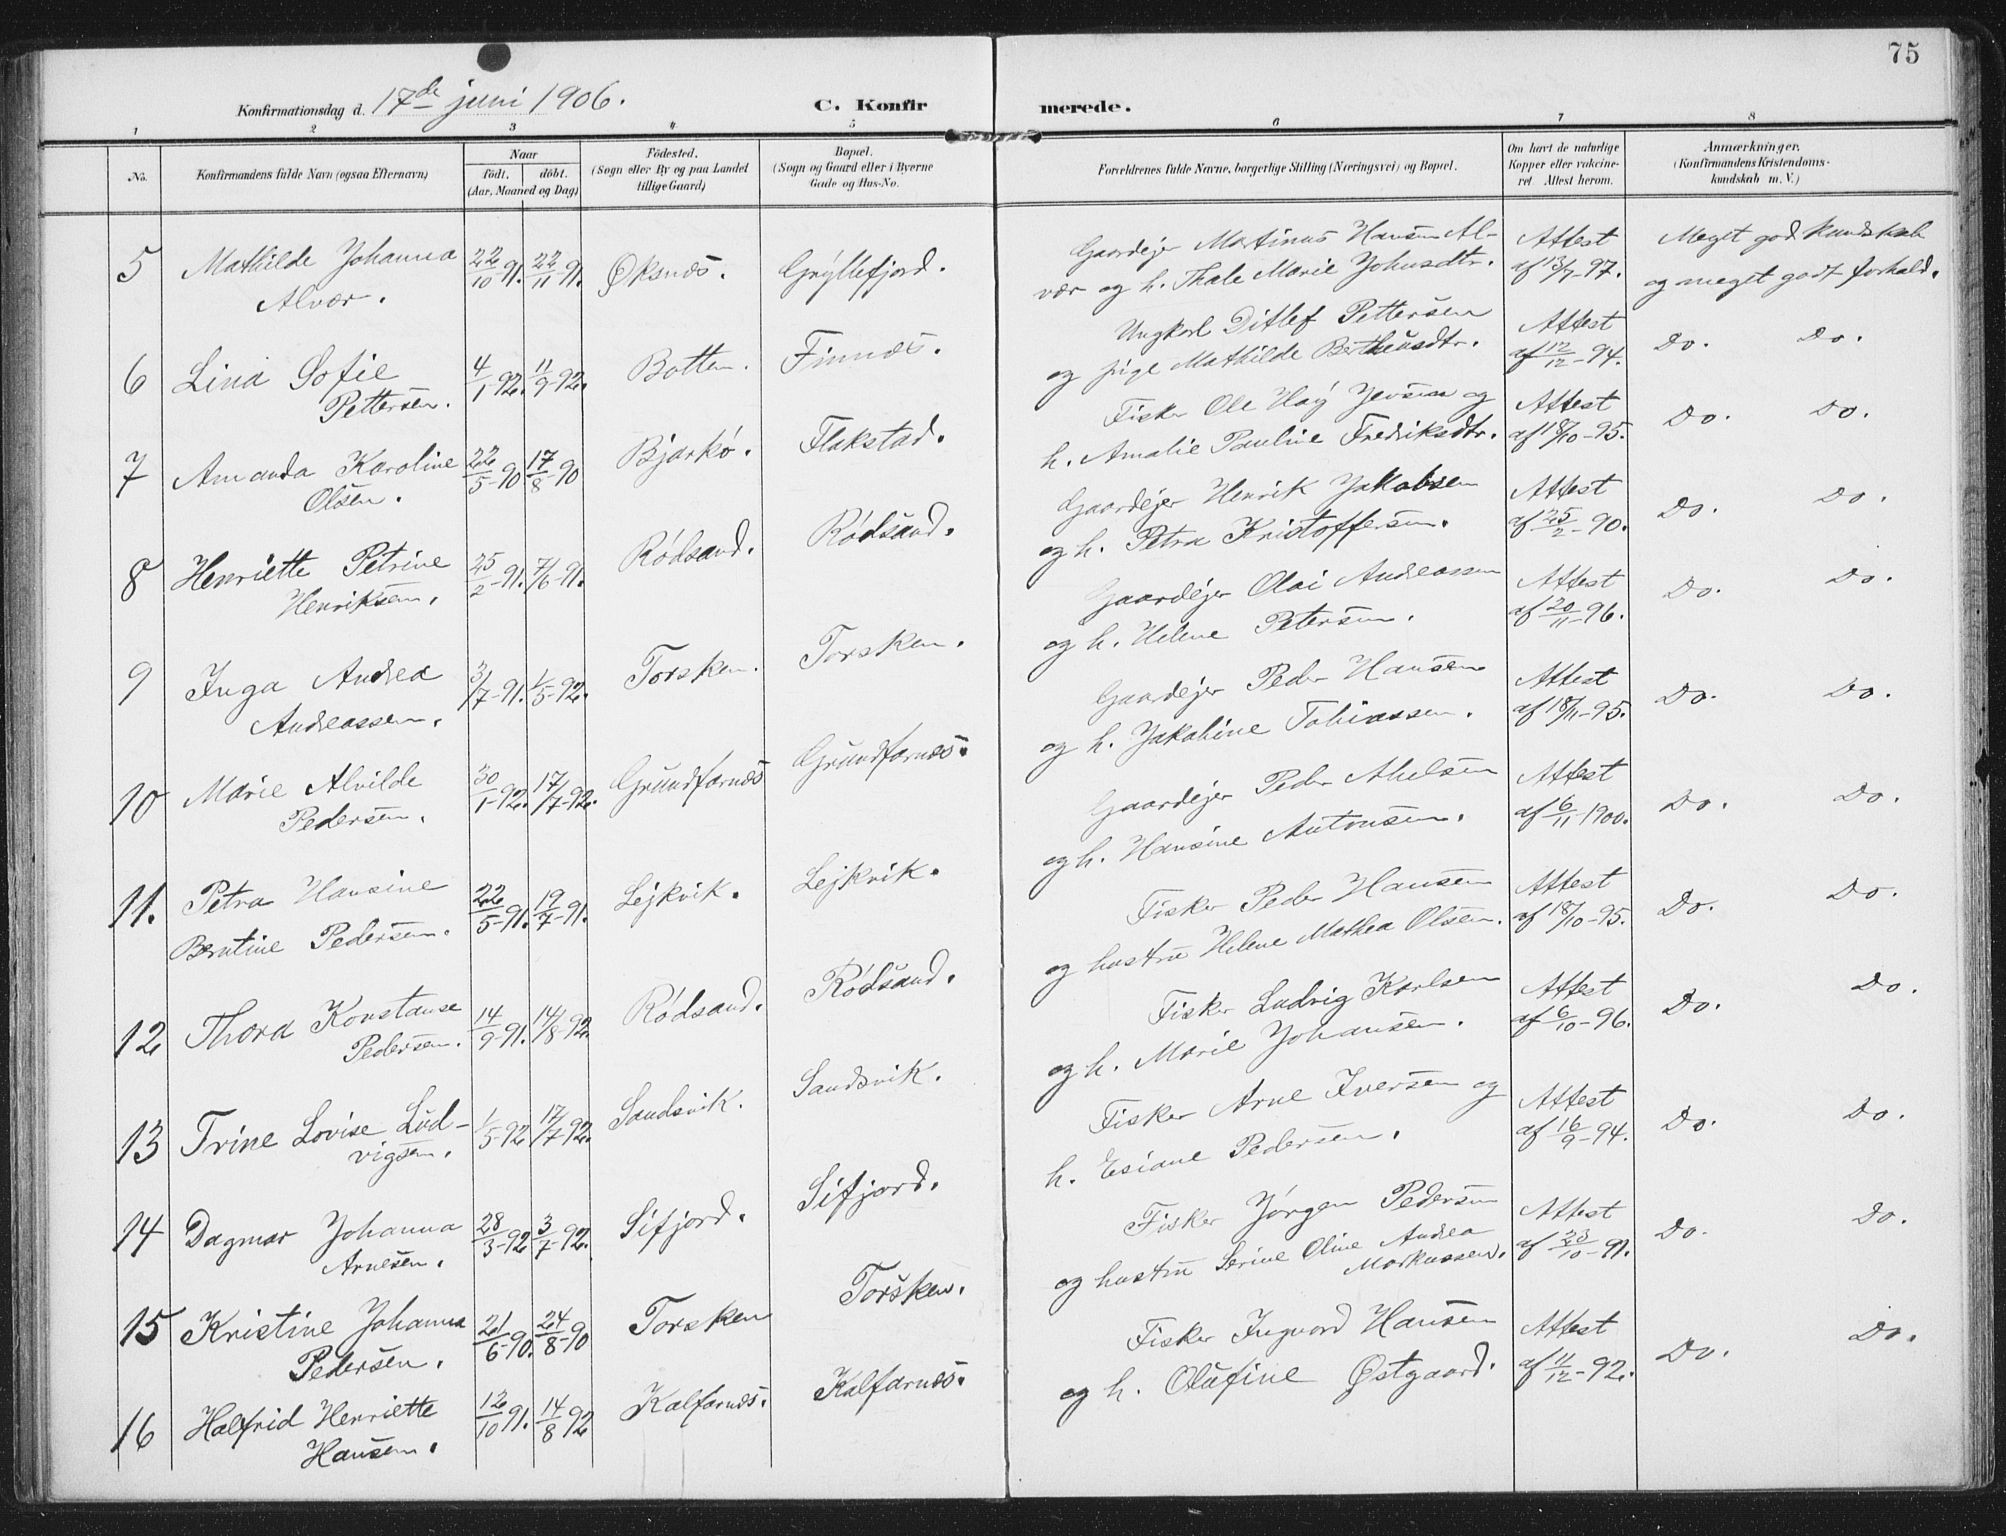 75
Konfirmationsdag d. 17de juni 1906. C. Konfirmerede.
1 2 3 4 5 6 7 8
No. Konfirmandens fulde Navn (ogsaa Efternavn) Naar født. døbt. (Aar, Maaned og Dag) Fødested. (Sogn eller By og paa Landet tillige Gaard) Bopæl. (Sogn og Gaard eller i Byerne Gade og Hus-No. Forældrenes fulde Navne, borgerlige Stilling (Næringsvei) og Bopæl. Om havt de naturlige Kopper eller vaccineret. Attest herom. Anmærkninger. (Konfirmandens Kristendomskundskab m. V.)
5 Mathilde Johanna 22/10 91. 22/11 91. Øksnes. Gryllefjord. Gaardejer Martinus Hansen Al- Attest Meget god kundskab
Alvær. vær og h. Thale Marie Johnsdtr. af 13/7-97. og meget godt forhold.
6 Lina Sofie 4/1-92. 11/9-92. Botten. Finnæs. Ungkarl Ditlef Pettersen Attest Do. Do.
Pettersen. og pige Mathilde Bertheusdtr. af 12/12-94.
7 Amanda Karoline 22/5-90 17/8-90 Bjarkø. Flakstad. Fisker Ole Høy Jensen og Attest Do. Do.
Olsen. h. Amalie Pauline Fredriksdtr. af 18/10-95.
8 Henriette Petrine 25/2-91. 7/6-91. Rødsand. Rødsand. Gaardejer Henrik Jakobsen Attest Do. Do.
Henriksen. og h. Petra Kristoffersen. af 25/2-90.
9 Inga Andrea 3/7-91. 1/5-92. Torsken. Torsken. Gaardejer Olai Andreassen Attest Do. Do.
Andreassen. og h. Helene Petersen. af 20/11-96.
10 Marie Alvilde 30/1-92. 17/7-92. Grundfarnes Grundfarnes. Gaardejer Peder Hansen Attest Do. Do.
Pedersen. og h. Jakobine Tobiassen. af 18/11-95.
11. Petra Hansine 22/5-91. 19/7-91. Lejkvik. Lejkvik. Gaardejer Peder Abelsen Attest Do. Do.
Berntine Pedersen. og h. Hansine Antonsen. af 6/11-1900.
12 Thora Konstanse 14/9-91. 14/8-92. Rødsand. Rødsand. Fisker Peder Hansen Attest Do. Do.
Pedersen. og hustru Helene Mathea Olsen. af 18/10-95.
13 Trine Lovise Lud- 1/5-92 17/7-92. Sandsvik. Sandsvik. Fisker Ludvig Karlsen Attest Do. Do.
vigsen. og h. Marie Johansen. af 6/10-96.
14 Dagmar Johanna 28/3-92 3/7-92. Sifjord. Sifjord. Fisker Arne Iversen og Attest Do. Do.
Arnesen. h. Esiane Pedersen. af 16/9-94.
15 Kristine Johanna 21/6-90. 24/8-90 Torsken Torsken. Fisker Jørgen Pedersen Attest Do. Do.
Pedersen. og hustru Serine Oline Andrea Markussen. af 23/10-91.
16 Halfrid Henriette 12/10 91. 14/8 92 Kalfarnes. Kalfarnes. Fisker Ingvard Hansen Attest Do. Do.
Hansen. og h. Olufine Østgaard. af 11/12-92.